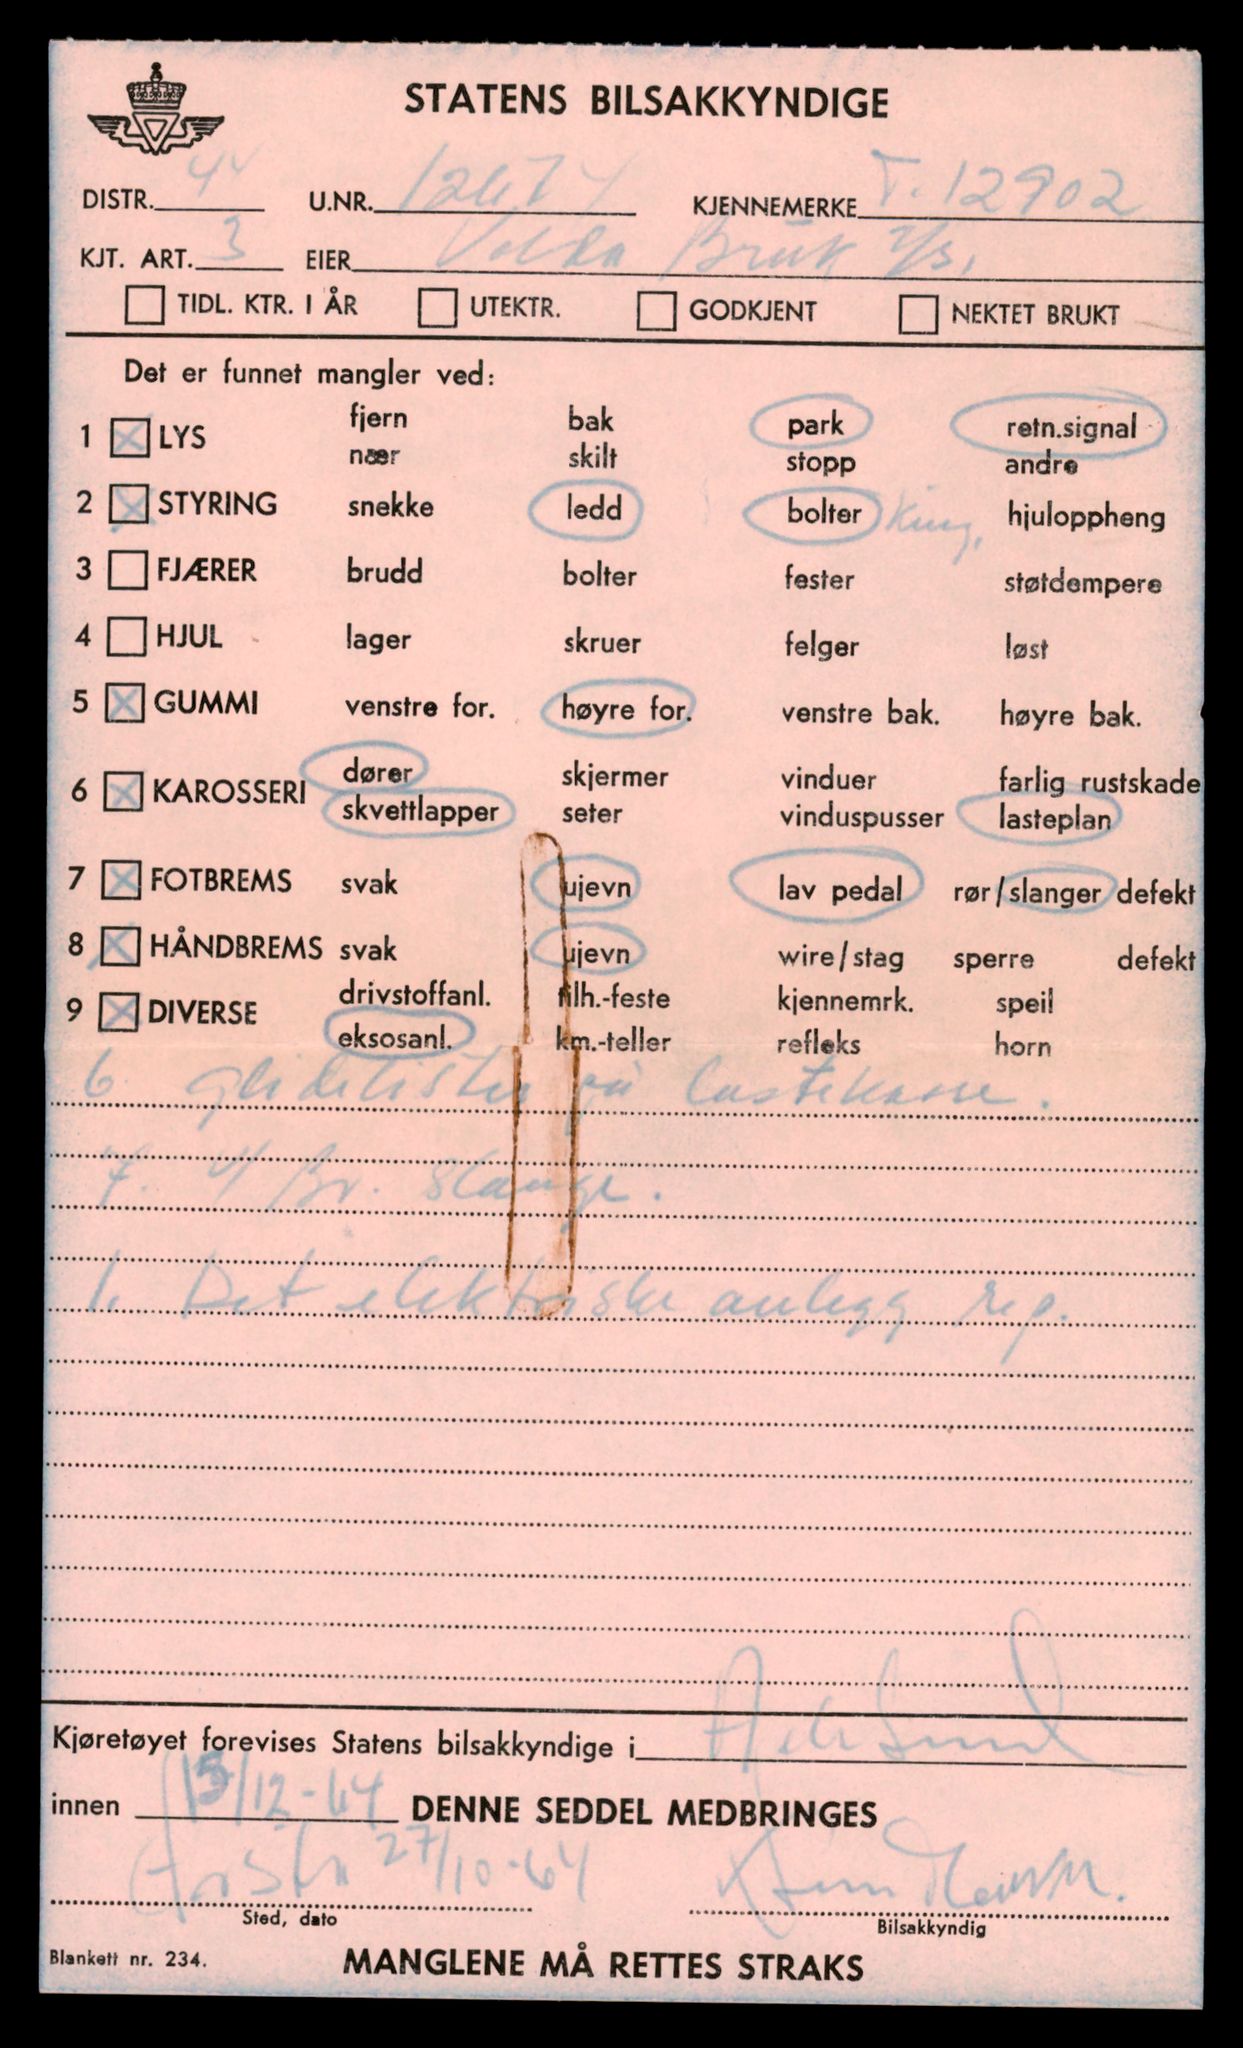 STATENS BILSAKKYNDIGE
DISTR. 44 U.NR. 12674 KJENNEMERKE T. 12902
KJT. ART. 3 EIER Volda Bruk A/S.
TIDL. KTR. I ÅR UTEKTR. GODKJENT NEKTET BRUKT
Det er funnet mangler ved:
1 LYS fjern bak park retn.signal
nær skilt stopp andre
2 STYRING snekke ledd bolter King, hjuloppheng
3 FJÆRER brudd bolter fester støtdempere
4 HJUL lager skruer felger løst
5 GUMMI venstre for. høyre for. venstre bak. høyre bak.
6 KAROSSERI dører skjermer vinduer farlig rustskade
skvettlapper seter vinduspusser lasteplan
7 FOTBREMS svak ujevn lav pedal rør/slanger defekt
8 HÅNDBREMS svak ujevn wire/stag sperre defekt
9 DIVERSE drivstoffanl. tilh.-feste kjennemrk. speil
eksosanl. km.-teller refleks horn
6. glidelister på lastekasse.
7. 4 Br. slange.
1. Det elektriske anlegg rep.
Kjøretøyet forevises Statens bilsakkyndige i Ålesund
innen 15/12-64 DENNE SEDDEL MEDBRINGES
Ørsta 27/10-64
Sted, dato Bilsakkyndig
Blankett nr. 234. MANGLENE MÅ RETTES STRAKS